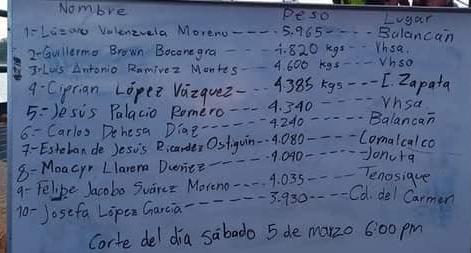 Nombre Peso Lugar
1- Lázaro Valenzuela Moreno --- 5.965 --- Balancán
2- Guillermo Brown Bocanegra --- 4.820 kgs --- Vhsa.
3- Luis Antonio Ramírez Montes --- 4.600 kgs --- Vhsa
4- Ciprian López Vázquez --- 4.385 kgs --- E. Zapata
5- Jesús Palacio Romero --- 4.340 --- Vhsa.
6- Carlos Dehesa Díaz --- 4240 --- Balancán
7- Esteban de Jesús Ricardez Ostiguin -- 4.080 --- Comalcalco
8- Moacyr Llarena --- 4.040 --- Jonuta
9- Felipe Jacobo Suárez Moreno --- 4.035 --- Tenosique
10- Josefa López García --- 3.930 --- Cd. del Carmen
Corte del día sábado 5 de marzo 6:00 pm